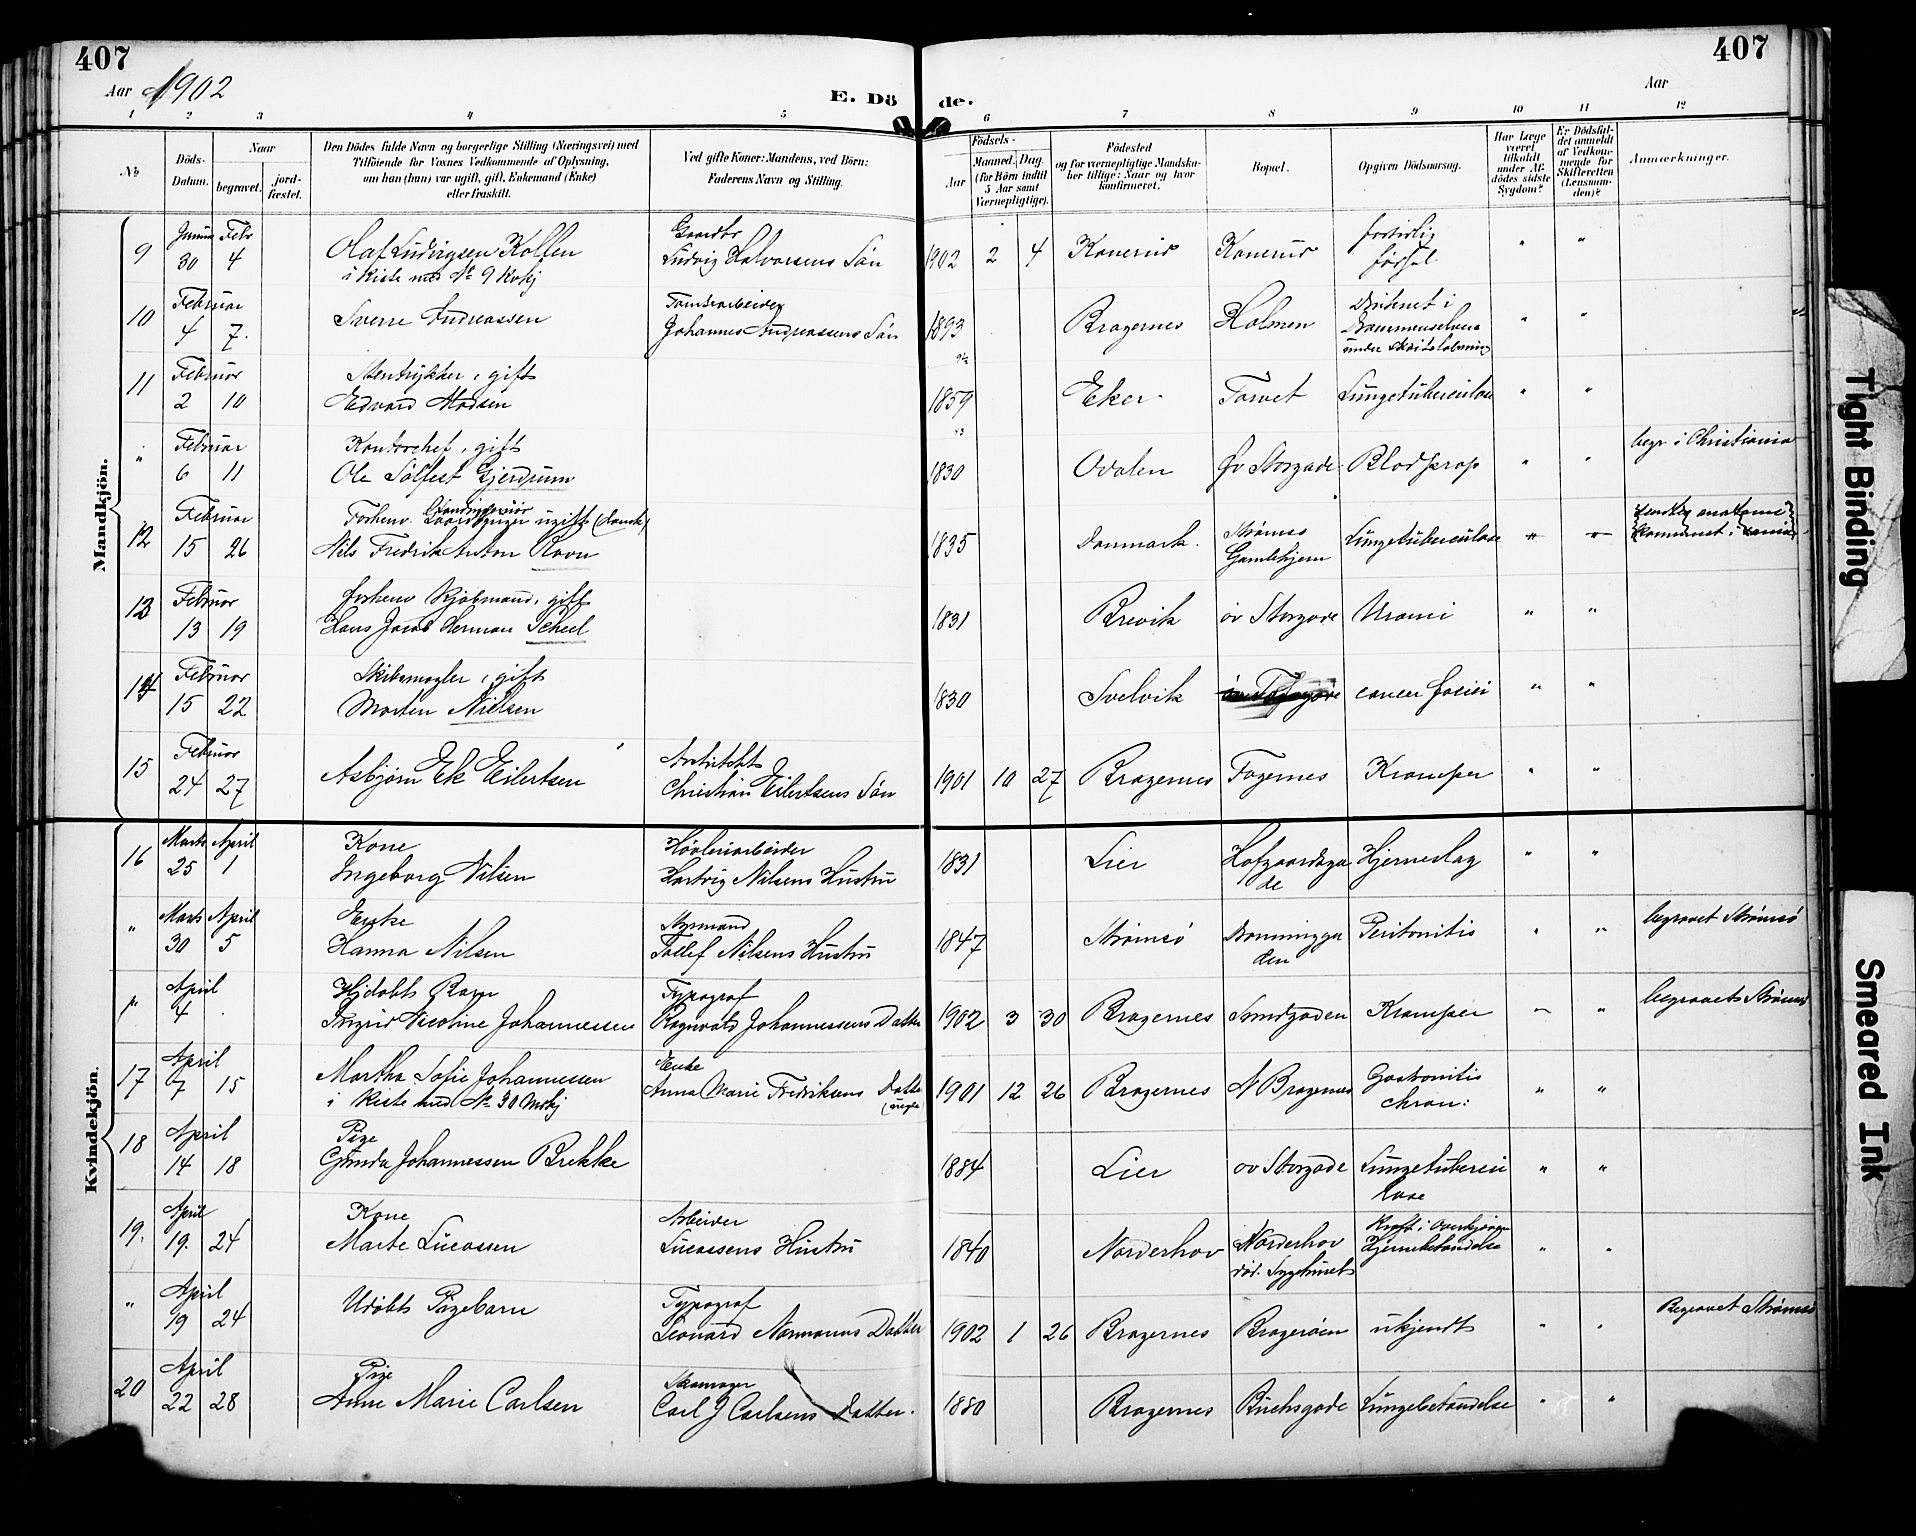 407
407
Aar 1902
E. Döde.
Aar
1 2 3 4 5 6 7 8 9 10 11 12
No
Döds-Datum.
Naar
begravet.
jordfæstet.
Den Dödes fulde Navn og borgerlige Stilling (Næringsvei) med
Tilföiende for Voxnes Vedkommende af Oplysning,
om han (hun) var ugift, gift, Enkemand (Enke)
eller fraskilt.
Ved gifte Koner: Mandens, ved Börn:
Faderens Navn og Stilling.
Födsels-
Aar
Maaned. Dag.
(for Börn indtil
5 Aar samt
Værnepligtige).
Födested
og for værnepligtige Mandskaber tillige: Naar og hvor
konfirmeret.
Bopæl.
Opgiven Dödsaarsag.
Har Læge
været
tilkaldt
under Afdödes sidste
Sygdom?
Er Dödsfaldet anmeldt
af Vedkommende for
Skifteretten
(Lensmanden)?
Anmærkninger.
Mandkjön.
9 Januar 30 Febr 4
Olaf Ludvigsen Kolfen
i Kiste med No 9 Kvkj
Gaardbr
Ludvig Halvorsens Sön
1902 2 4 Konerud Konerud fortidlig
födsel " "
10 Februar 4 7.
Sverre Andreassen
Tomtearbeider
Johannes Andreassens Sön
1893 Bragernes Holmen Druknet i
Drammenselven
under Skøiteløbning " "
11 Februar 2 10
Stentrykker, gift
Edvard Madsen
1859 Eker Torvet Lungetuberculose " "
43
" Februar 6 11
Kontorchef, gift
Ole Solfest Gjerdrum
1830 Odalen Øv Storgade Blodprop " " begr i Christiania
12 Februar 15 26
Forhenv. ugift (dansk)
Nils Fredrik Anton Ravn
1835 Danmark. Strømsø
Gamlehjem Lungetuberculose " "
13 Februar 13 19
forhenv Kjøbmand, gift
Hans Jacob Herman Scheel
1831 Brevik øv Storgade Uræmi " "
14 Februar 15 22
Skibsmægler, gift
Morten Nielsen
1830 Svelvik cancer faciei " "
15 Februar 24 27
Asbjørn Ek Eilertsen
Arkitekt
Christian Eilertsens Søn
1901 10 27 Bragernes Fagernes Kramper " "
Kvindekjön.
16 Marts 25 April 1
Kone
Ingeborg Nilsen
Høvleriarbeider
Hartvig Nilsens Hustru
1831 Lier Hofgaardsga
de Hjerneslag " "
" Marts 30 April 5
Enke
Hanna Nilsen
Styrmand
Tollef Nilsens Hustru
1847 Strømsø Dronningga
den Peritonitis " " begravet Strømsø
" April 4
Hjdøbt Barn
Ingrid Nicoline Johannessen
Typograf
Ragnvald Johannessens Datter
1902 3 30 Bragernes Smedgaden Kramper " " begravet Strømsø
17 April 7 15
Martha Sofie Johannessen
i Kiste med No 30 Mdkj
Enke
Anna Marie Fredriksens Datter
(uægte)
1901 12 26 Bragernes N Bragernes Gastronitis
chron: " "
18 April 14 18
Pige
Gunda Johannessen Brekke
1884 Lier øv Storgade Lungetubercu
lose " "
19. April 19. 24
Kone
Marte Lucassen
Arbeider
Lucassens Hustru
1840 Norderhov Norderhov
død. Sygehuset Kræft i
Hjernebetændelse " "
" April 19 24
Udøbt Pigebarn
Typograf
Leonard Normanns Datter
1902 1 26 Bragernes Bragerøen ukjendt " " Begravet Strømsø
20 April 22 28
Pige
Anne Marie Carlsen
Skomager
Carl J Carlsens Datter.
1880 Bragernes Buchsgade Lungebetændelse " "
Tight Binding
Smeared Ink